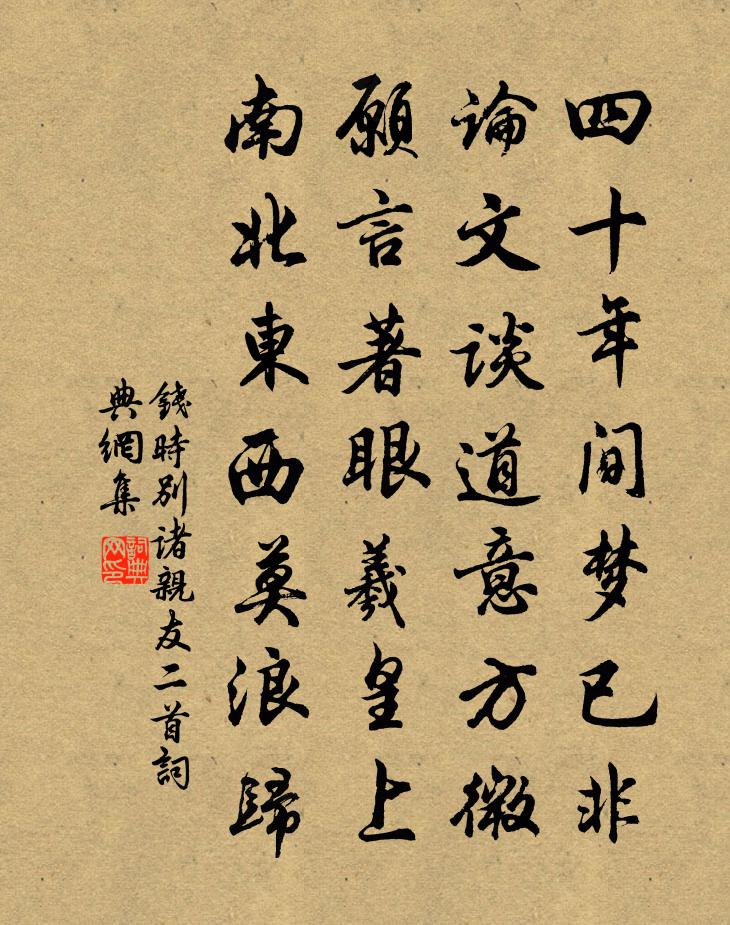 四十年间梦已非
论文谈道意方微
願言著眼羲皇上
南北東西莫浪歸
錢時别诸親友二首詞
典網集
詞典
网印